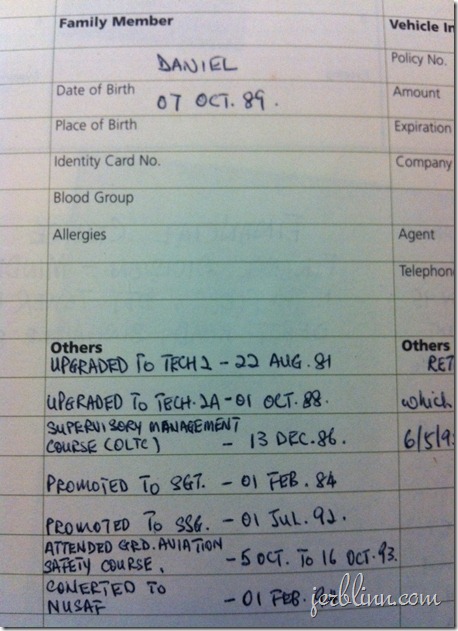 Family Member
Vehicle In
DANIEL
Policy No.
Date of Birth
07 OCT. 89.
Amount
Place of Birth
Expiration
Identity Card No.
Company
Blood Group
Allergies
Agent
Telephon
Others
Others
UPGRADED TO TECH 2 - 22 AUG. 81
RET
UPGRADED TO TECH.2A - 01 OCT. 88.
which
SUPERVISORY MANAGEMENT
COURSE (OLTC) - 13 DEC. 86.
6/5/9
PROMOTED TO SGT. - 01 FEB. 84
PROMOTED TO SSG. - 01 JUL. 92.
ATTENDED GRD. AVIATION
SAFETY COURSE. - 5 OCT. TO 16 OCT. 93.
CONERTED TO
NUSAF - 01 FEB.
jerblinn.com